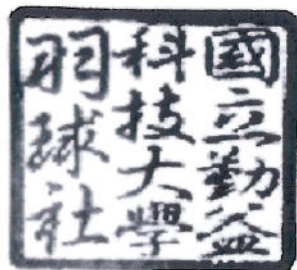 國立勤益
科技大學
羽球社